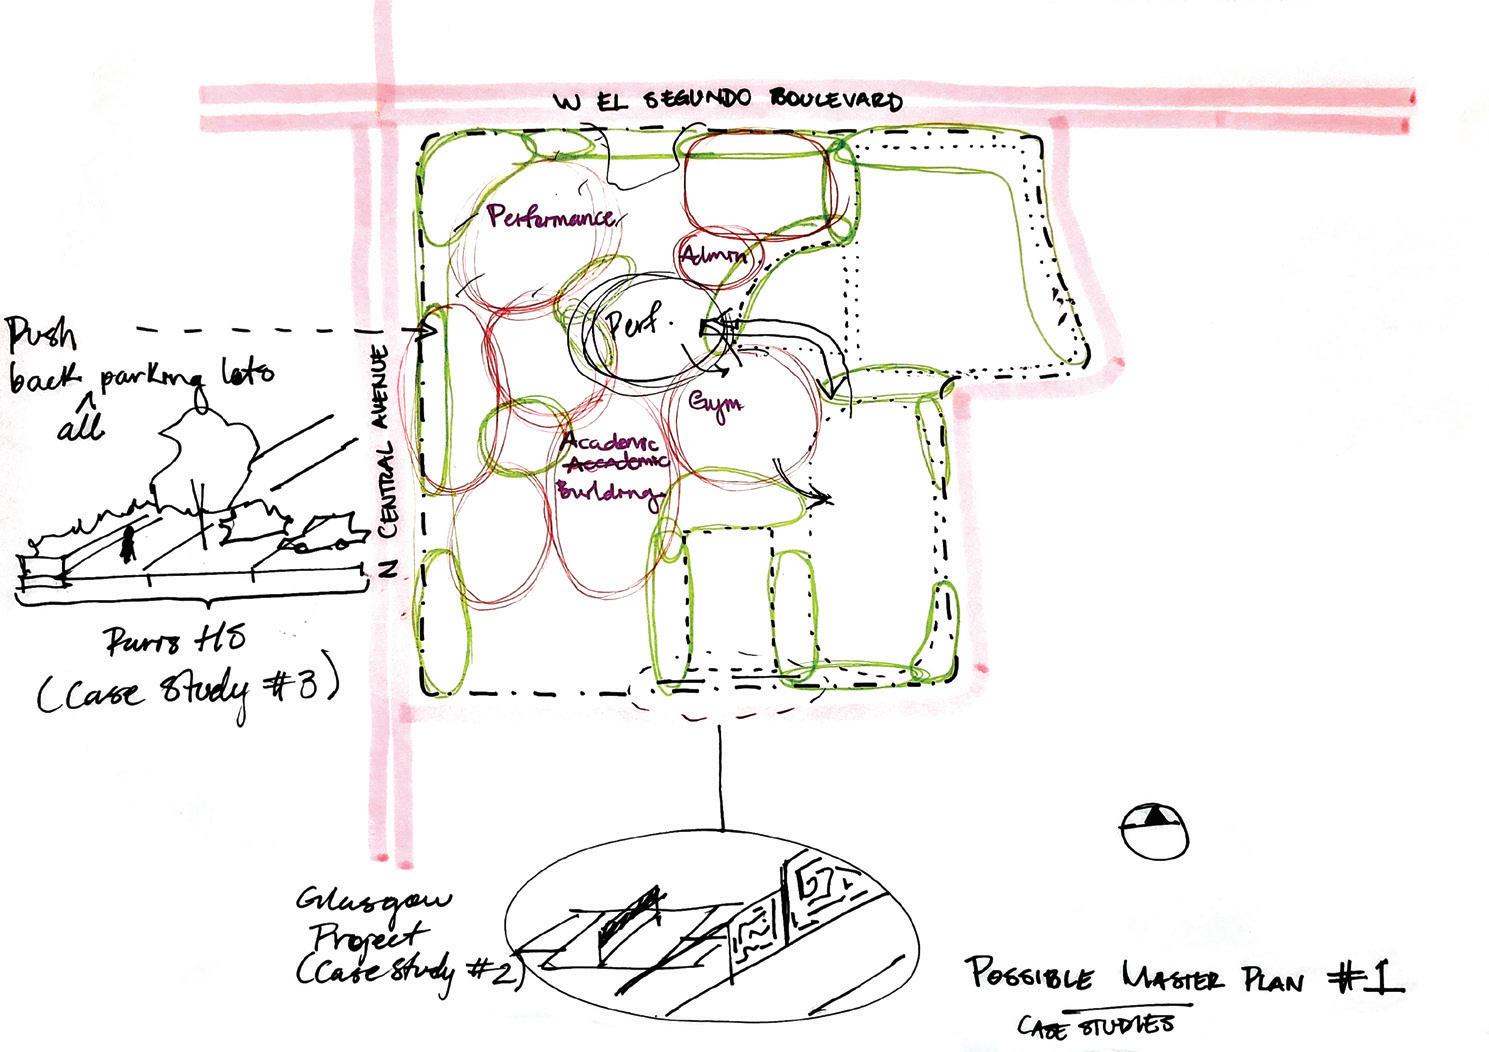 W EL SEGUNDO BOULEVARD
Performance
Admin
Perf.
Push
back parking lots
all
N CENTRAL AVENUE
Gym
Academic
Academic
Building
HS
(Case Study #3)
Glasgow
Project
(Case Study #2)
POSSIBLE MASTER PLAN #1
CASE STUDIES